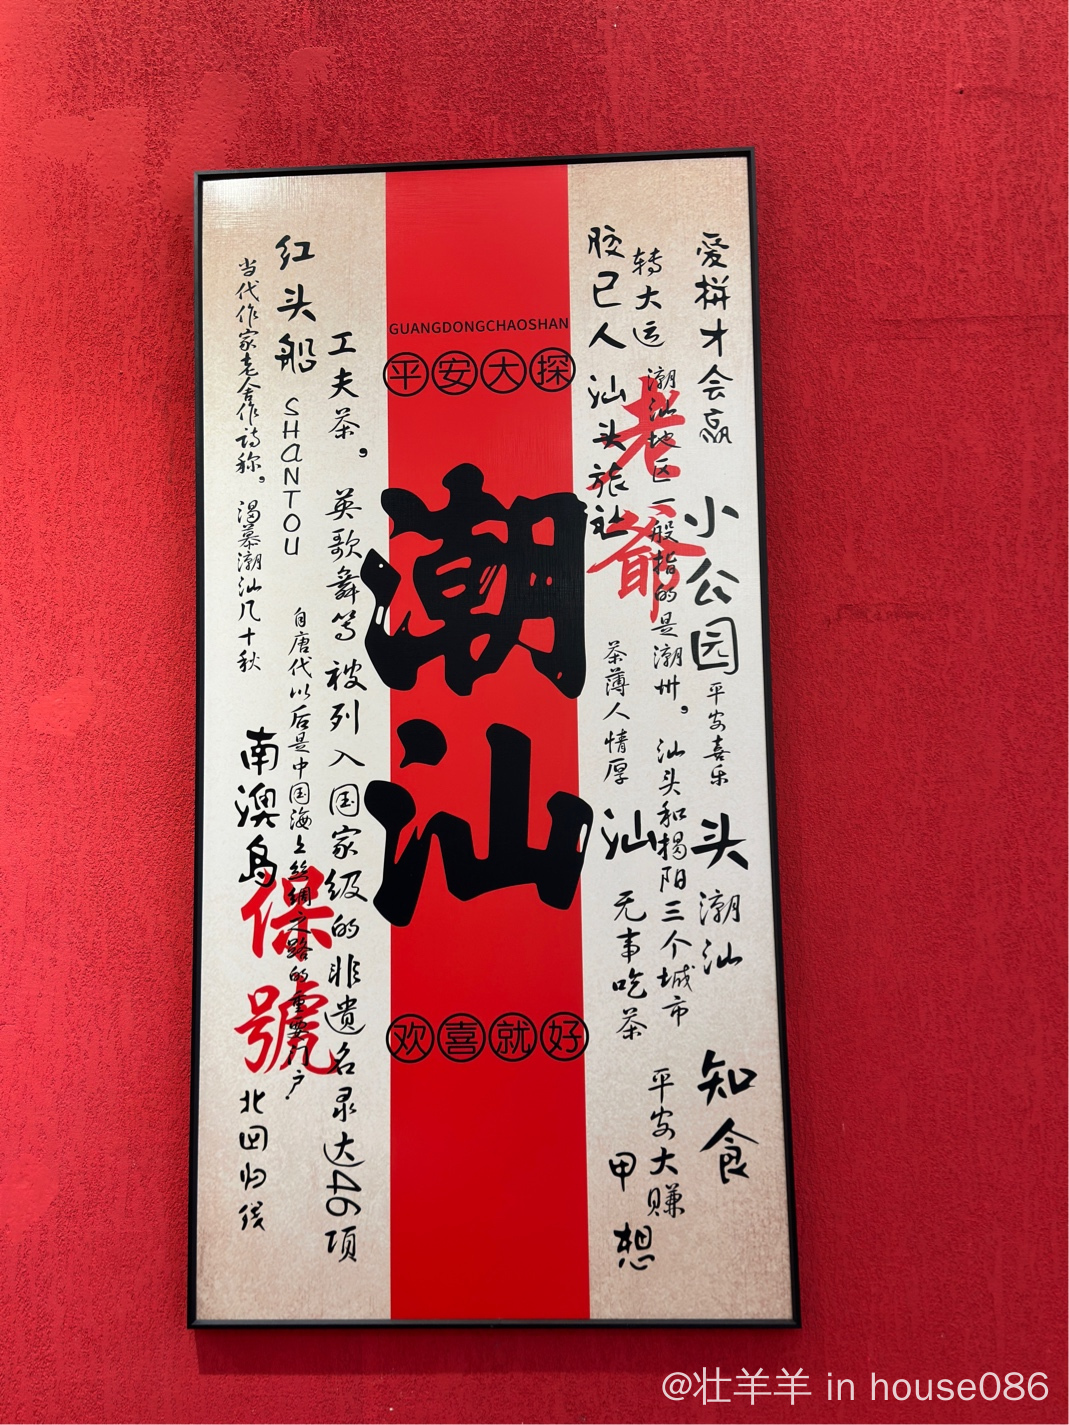 爱拼才会赢
小公园
平安喜乐
头
潮汕
知食
转大运
潮汕地区一般指的是潮州，汕头和揭阳三个城市
平安大赚
胶己人
汕头旅社
老爷
茶薄人情厚
汕
无事吃茶
甲
想
GUANGDONGCHAOSHAN
平安大探
潮汕
欢喜就好
工夫茶，英歌舞等被列入国家级的非遗名录达46项
红头船
SHANTOU
自唐代以后是中国海上丝绸之路的重要门户
保號
当代作家老舍作诗称，渴慕潮汕几十秋
南澳岛
北回归线
@壮羊羊 in house086